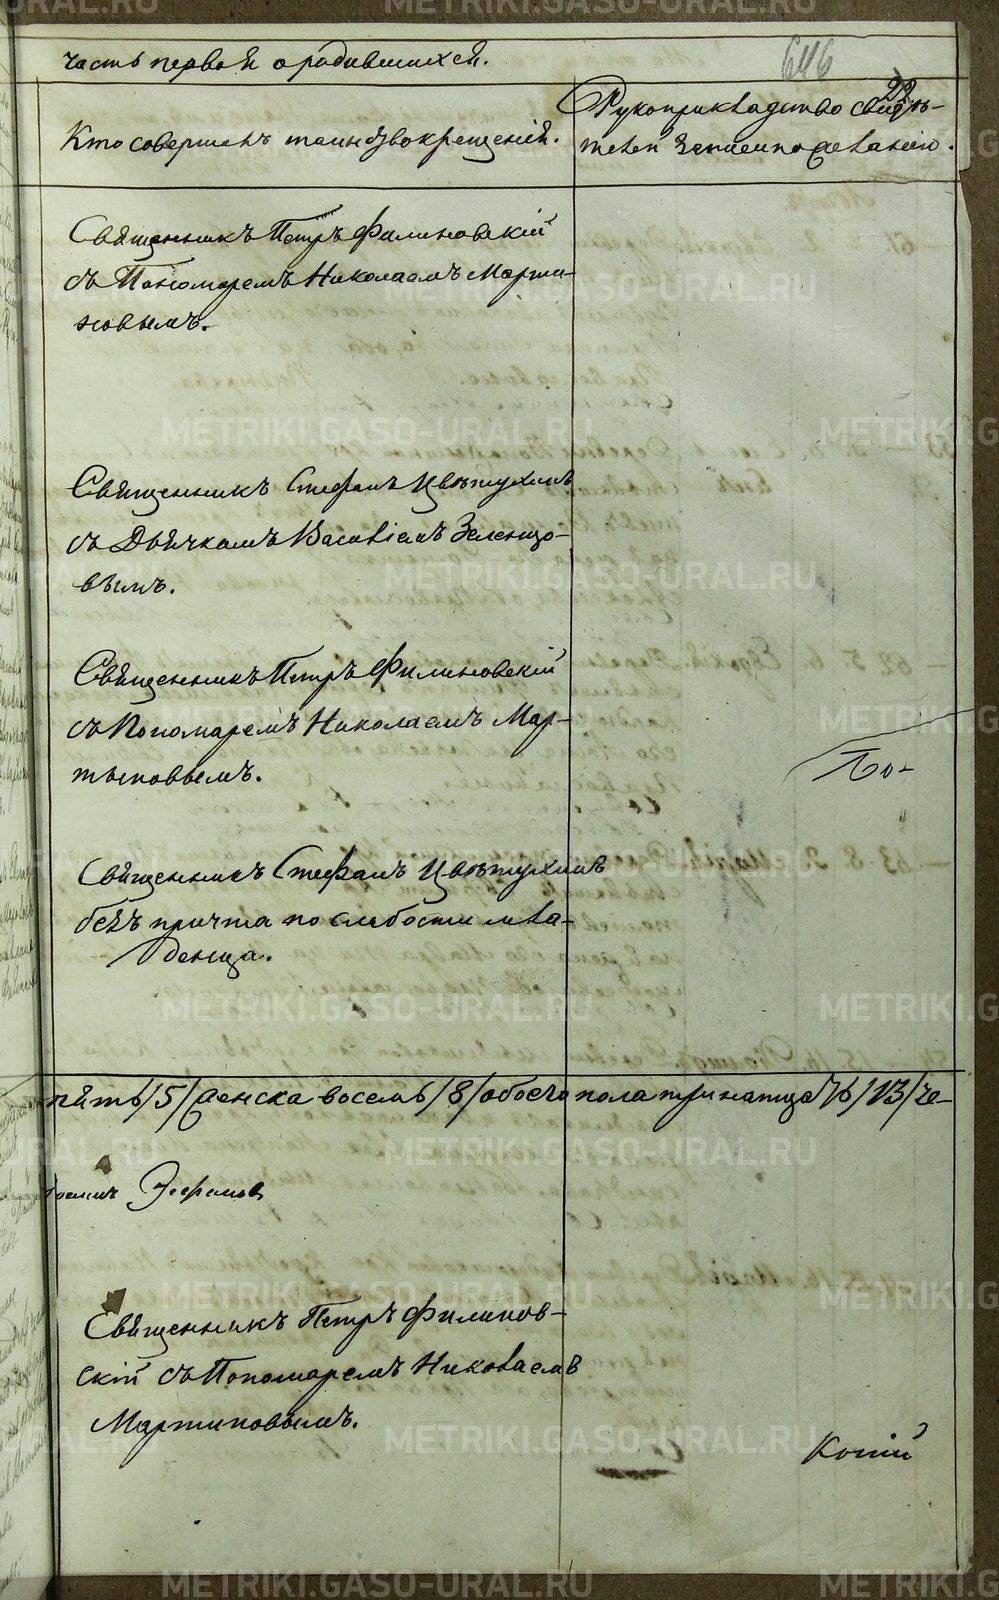 часть первой о родившихся.
646
22
Рукоприкладство свидѣ-
Кто совершалъ таинство крещенія.
телей записи по желанію.
Священникъ Петръ Филиновскій
съ Пономаремъ Николаемъ Марти-
новымъ.
Священникъ Стефанъ Цвѣтухинъ
съ Дьячкомъ Василіемъ Зеленцо-
вымъ.
Священникъ Петръ Филиновскій
съ Пономаремъ Николаемъ Мар-
тыновымъ.
По-
Священникъ Стефанъ Цвѣтухинъ
безъ причта по слабости мла-
денца.
пять /5/ женска восемь /8/ обоего пола тринатцать /13/ че-
Ефремовъ
Священникъ Петръ Филинов-
скій съ Пономаремъ Николаемъ
Мартиновымъ.
Копіи
METRIKI.GASO-URAL.RU